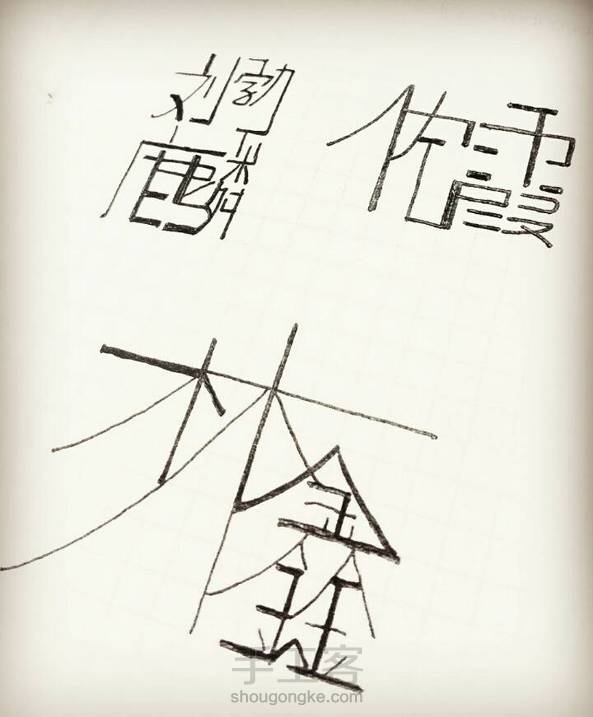 刘勃麟
霞
林鑫
手工客
shougongke.com